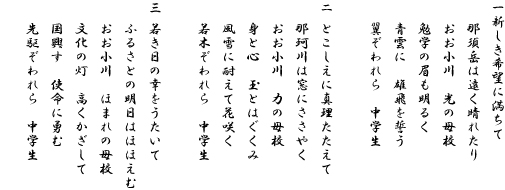 一 新しき希望に満ちて
那須岳は遠く晴れたり
おお小川 光の母校
勉学の眉も明るく
青雲に 雄飛を誓う
翼ぞわれら 中学生
二 とこしえに真理たたえて
那珂川は窓にささやく
おお小川 力の母校
身と心 玉とはぐくみ
風雪に耐えて花咲く
若木ぞわれら 中学生
三 若き日の幸をうたいて
ふるさとの明日はほほえむ
おお小川 ほまれの母校
文化の灯 高くかざして
国興す 使命に勇む
先駆ぞわれら 中学生